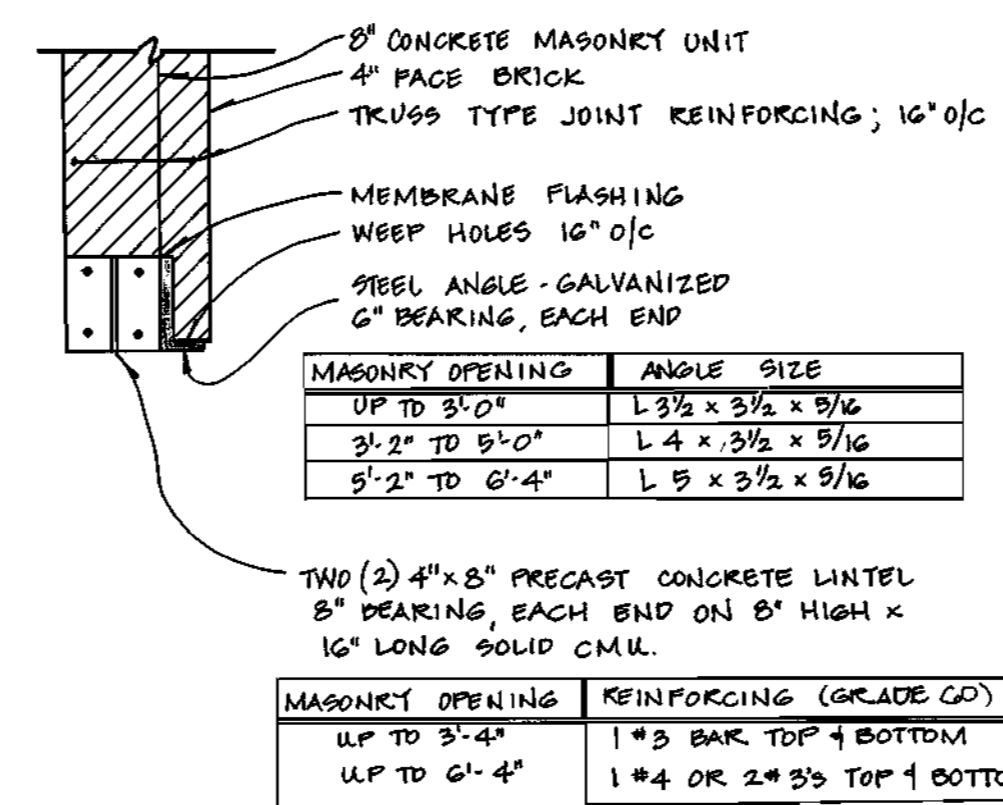 8" CONCRETE MASONRY UNIT
4" FACE BRICK
TRUSS TYPE JOINT REINFORCING; 16" O/C
MEMBRANE FLASHING
WEEP HOLES 16" O/C
STEEL ANGLE - GALVANIZED
6" BEARING, EACH END
MASONRY OPENING ANGLE SIZE
UP TO 3'-0" L 3 1/2 x 3 1/2 x 5/16
3'-2" TO 5'-0" L 4 x 3 1/2 x 5/16
5'-2" TO 6'-4" L 5 x 3 1/2 x 5/16
TWO (2) 4" x 8" PRECAST CONCRETE LINTEL
8" BEARING, EACH END ON 8" HIGH x
16" LONG SOLID CMU.
MASONRY OPENING REINFORCING (GRADE 60)
UP TO 3'-4" 1 #3 BAR TOP & BOTTOM
UP TO 6'-4" 1 #4 OR 2 #3's TOP & BOTTO